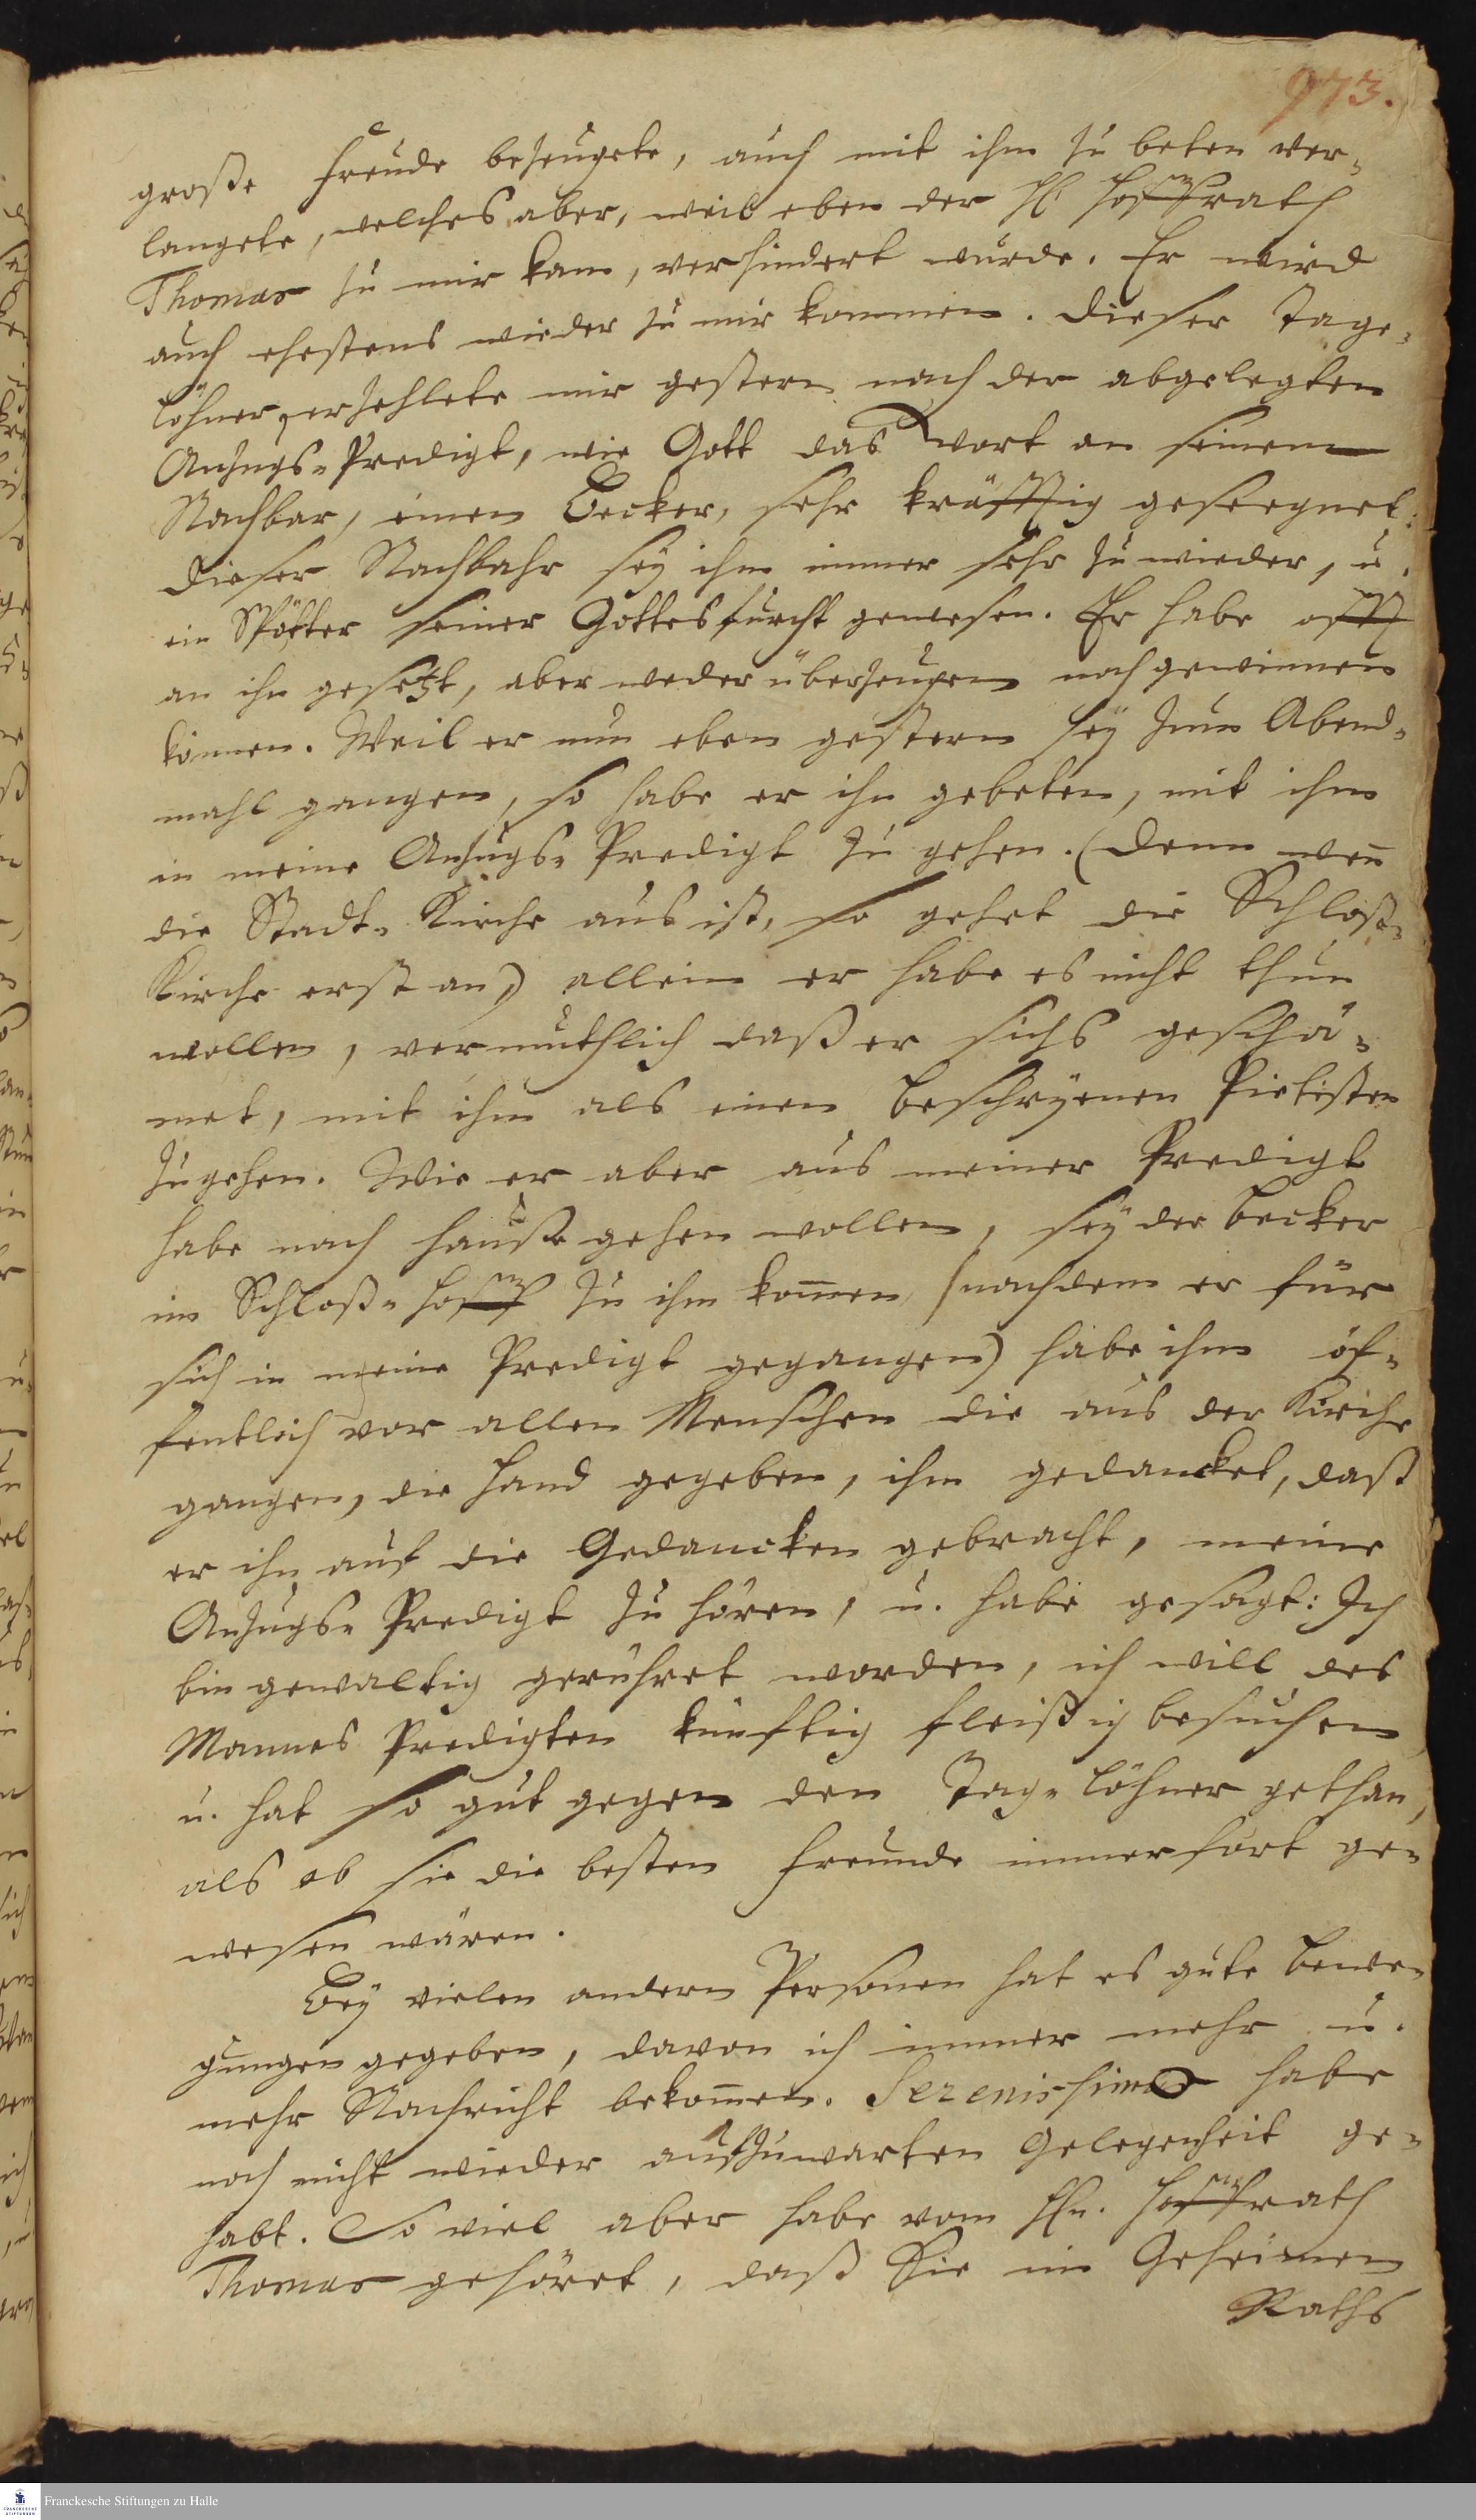 973.
große Freude bezeugete, auch mit ihm zu beten ver-
langete, welches aber, weil eben der H. Hoffrath
Thomas zu mir kam, verhindert wurde. Er wird
auch ehestens wieder zu mir kommen. Dieser Tage-
löhner, erzehlete mir gestern nach der abgelegten
Anzugs-Predigt, wie Gott das Wort an seinem
Nachbar, einen Becker, sehr kräfftig geseegnet:
Dieser Nachbahr sey ihm immer sehr zu wieder, u.
ein Spötter seiner Gottesfurcht gewesen. Er habe offt
an ihn gesetzt, aber weder überzeugen noch gewinnen
können. Weil er nun eben gestern sey zum Abend-
mahl gangen, so habe er ihn gebeten, mit ihm
in meine Anzugs-Predigt zu gehen. (Denn wen̅
die Stadt-Kirche aus ist, so gehet die Schloß-
Kirche erst an,) allein er habe es nicht thun
wollen, vermuthlich daß er sichs geschä-
met, mit ihm als einen beschryenen Pietisten
zugehen. Wie er aber aus meiner Predigt
habe nach Hauße gehen wollen, sey der Becker
im Schloß-Hoff zu ihm kom̅en, (nachdem er für
sich in meine Predigt gegangen) habe ihm öf-
fentlich vor allen Menschen die aus der Kirche
gangen, die Hand gegeben, ihm gedancket, daß
er ihn auf die Gedancken gebracht, meine
Anzugs-Predigt zu hören, u. habe gesagt: Ich
bin gewaltig gerühret worden, ich will des
Mannes Predigten künftig fleißig besuchen
u. hat so gut gegen den Tag-Löhner gethan,
als ob sie die besten Freunde immerfort ge-
wesen wären.
Bey vielen andern Personen hat es gute Bewe-
gungen gegeben, davon ich immer mehr u.
mehr Nachricht bekom̅en. Serenissimo habe
noch nicht wieder aufzuwarten Gelegenheit ge-
habt. So viel aber habe vom Hn. Hoffrath
Thomas gehöret, daß Sie im Geheimen
Raths
Franckesche Stiftungen zu Halle